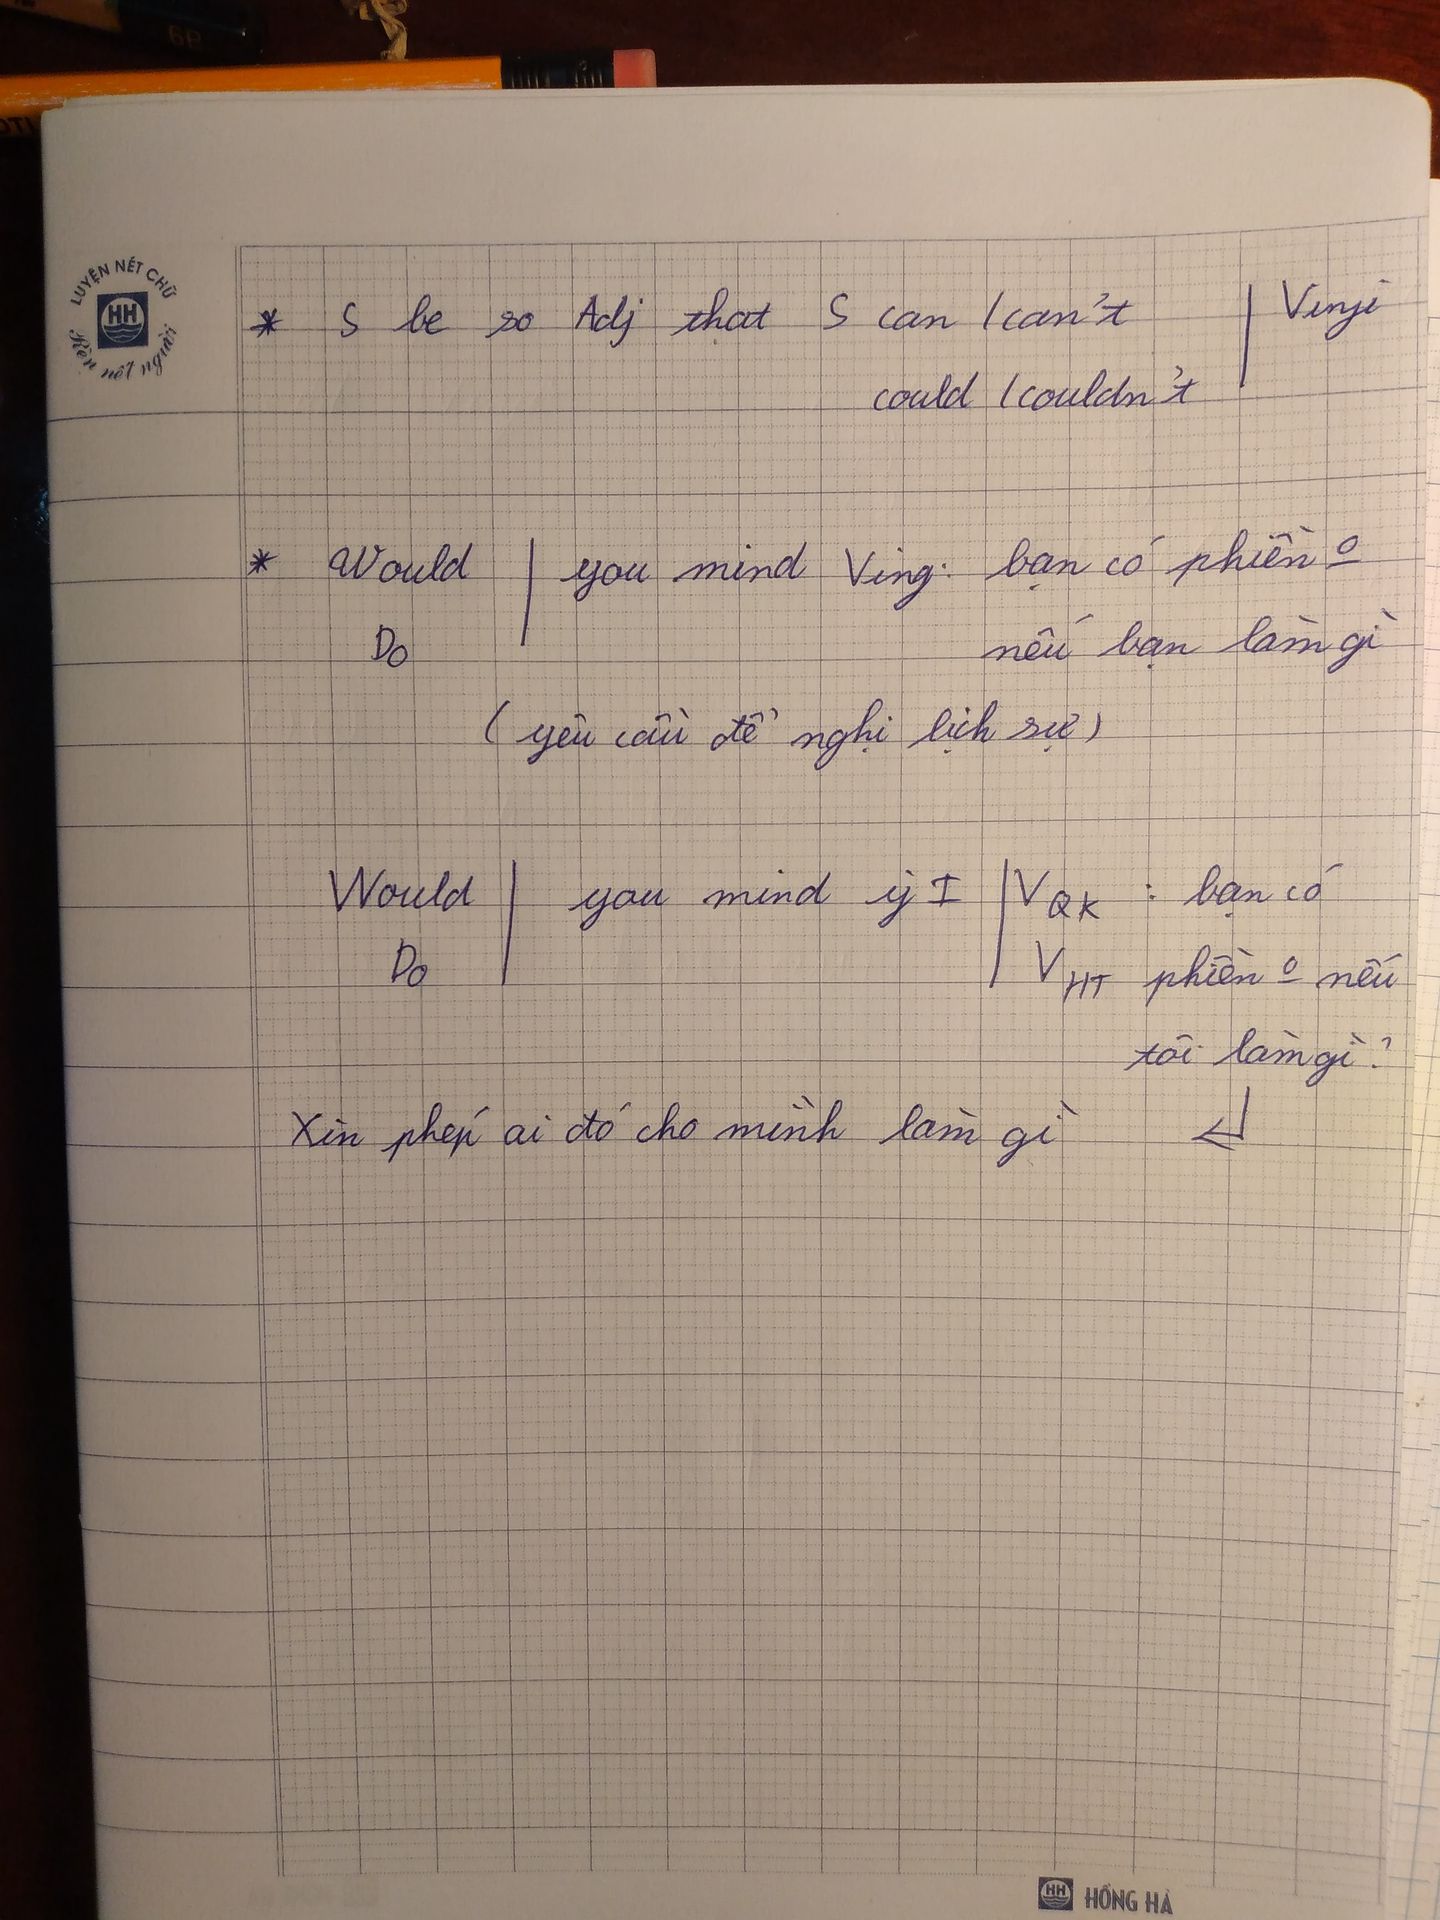 6B
LUYỆN NÉT CHỮ
HH
Rèn nết người
* S be so Adj that S can / can't | Vinfi
could / couldn't
* Would | you mind Ving: bạn có phiền o
Do nếu bạn làm gì
(yêu cầu đề nghị lịch sự)
Would | you mind if I | V QK : bạn có
Do V HT phiền o nếu
tôi làm gì?
Xin phép ai đó cho mình làm gì ↵
HH HỒNG HÀ